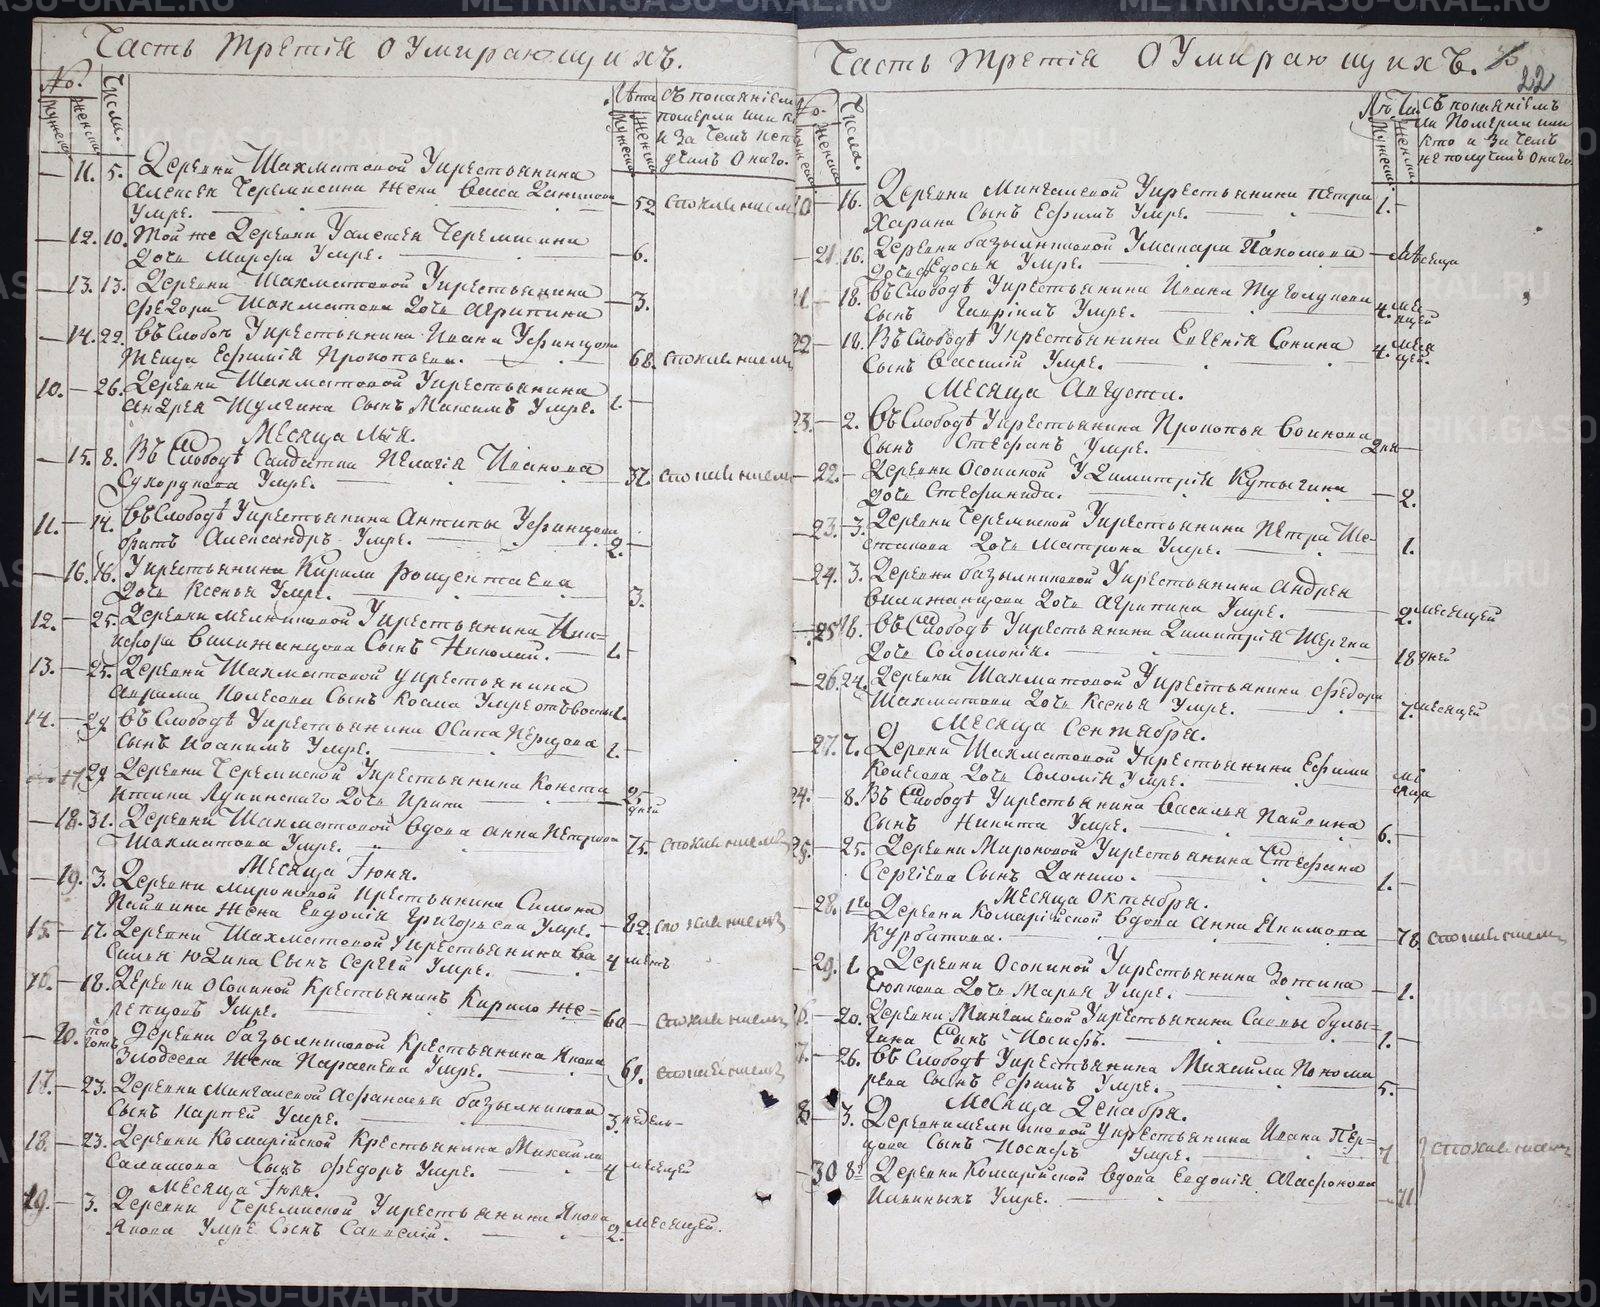 Часть третія о умирающихъ.
№.
Числа.
мужеска
женска
Лѣта
мужеска
женска
съ покаяніем
померли или
и за чемъ не п
лучилъ онаго.
11. 5. Деревни Шахматовой у крестьянина
Алексея Черемисина жена Васса
умре. 52 спокаянием
12. 10. Той же деревни у Алексея Черемисина
дочь Марфа умре. 6.
13. 13. Деревни Шахматовой у крестьянина
Федора Шахматова дочь Агрипина 3.
14. 22. въ Слободе у крестьянина Ивана Уфинцова
Ефимия Прокопьева. 68. спокаянием
10. 26. Деревни Шахматовой у крестьянина
Андрея Шулгина сынъ Максимъ умре. 1.
Месяца Мая.
15. 8. Въ Слободѣ салдатка Пелагія Иванова
умре. 37. спокаянием
11. 14. въ Слободѣ у крестьянина Антипы Уфинцова
братъ Александръ умре. 2.
16. 16. У крестьянина Кирила
дочь Ксенья умре. 3.
12. 25. Деревни Мелниковой у крестьянина Ни-
кифора Вилижанцова сынъ Николай. 1.
13. 25. Деревни Шахматовой у крестьянина
Аврама Колесова сынъ Косма умре отъ воспы 1.
14. 29 въ Слободѣ у крестьянина Осипа Перцова
сынъ Иоакимъ умре. 1.
17 29 Деревни Черемиской у крестьянина Конста
нтина Лупинскаго дочь Ирина 25 дней
18. 31. Деревни Шахматовой вдова Анна Петрова
Шахматова умре. 75. спокаянием
Месяца Іюня.
19. 3. Деревни Мироновой крестьянина Симона
Пайвина жена Евдокія Григорьева умре. 62. спокаянием
15 17. Деревни Шахматовой у крестьянина Ва
силья Юдина сынъ Сергей умре. 4
16. 18. Деревни Осокиной крестьянинъ Кирило Же-
лепцовъ умре. 60 спокаянием
20. то гожъ Деревни Базылниковой крестьянина Якова
Злодеева жена Параскева умре. 61. спокаянием
17. 23. Деревни Мингалевой Афанасья Базылникова
сынъ Карпей умре. 3. недель
18. 23. Деревни Комарійской крестьянина Михаила
Саламова сынъ Федоръ умре. 4 месецей
Месяца Іюля.
19. 3. Деревни Черемиской у крестьянина Якова
умре сынъ Савелій. 2. месецей.
Часть третія о умирающихъ. 22
Числа.
мужеска
женска
съ покаяніемъ
ли померли или
кто и за чемъ
не получилъ онаго.
20 16. Деревни Мингалевой у крестьянина Петра
Харина сынъ Ефимъ умре. 1.
21 16. Деревни Базылниковой у Макара Пахомова
дочь Федосья умре. месеца
21 18. Въ Слободѣ у крестьянина Ивана
сынъ Гаврилъ умре. 4. месецей
22 18. Въ Слободѣ у крестьянина Евгенія Сонина
сынъ Василій умре. 4. месецей.
Месяца Августа.
23. 2. Въ Слободѣ у крестьянина Прокопья Воинова
сынъ Стефанъ умре. 2
22. Деревни Осокиной у Димитрія Кутыгина
дочь Стефанида. 2.
23. 3. Деревни Черемиской у крестьянина Петра Ше-
стакова дочь Матрона умре. 1.
24. 3. Деревни Базылниковой у крестьянина Андрея
Вилижанцова дочь Агрипина умре. 2. месецей
25 16. Въ Слободѣ у крестьянина Димитрія
дочь Соломонія. 18 дней
26. 24. Деревни Шахматовой у крестьянина Федора
Шахматова дочь Ксенья умре. 7. месецей
Месяца Сентября.
27. 7. Деревни Шахматовой у крестьянина Ефима
Колесова дочь Соломія умре. месеца
24. 8. Въ Слободѣ у крестьянина Василья Пайвина
сынъ Никита умре. 6.
25. 25. Деревни Мироновой у крестьянина Стефана
Сергіева сынъ Данило. 1.
Месяца Октября.
28. 1го Деревни Комарійской вдова Анна Якимова
Курбатова. 78 спокаянием
29. 1. Деревни Осокиной у крестьянина Зотина
дочь Марья умре. 1.
26. 20. Деревни Мингалевой у крестьянина Савы Булы-
гина сынъ Иосифъ. 1.
7. 26. Въ Слободѣ у крестьянина Михаила Понома
рева сынъ Ефимъ умре. 5.
Месяца Декабря.
8 3. Деревни Мелниковой у крестьянина Ивана Пер-
цова сынъ Иосифъ умре. 7 спокаянием
30 8 Деревни Комарійской вдова Евдокія Агафонова
Ильиныхъ умре. 71
METRIKI.GASO-URAL.RU